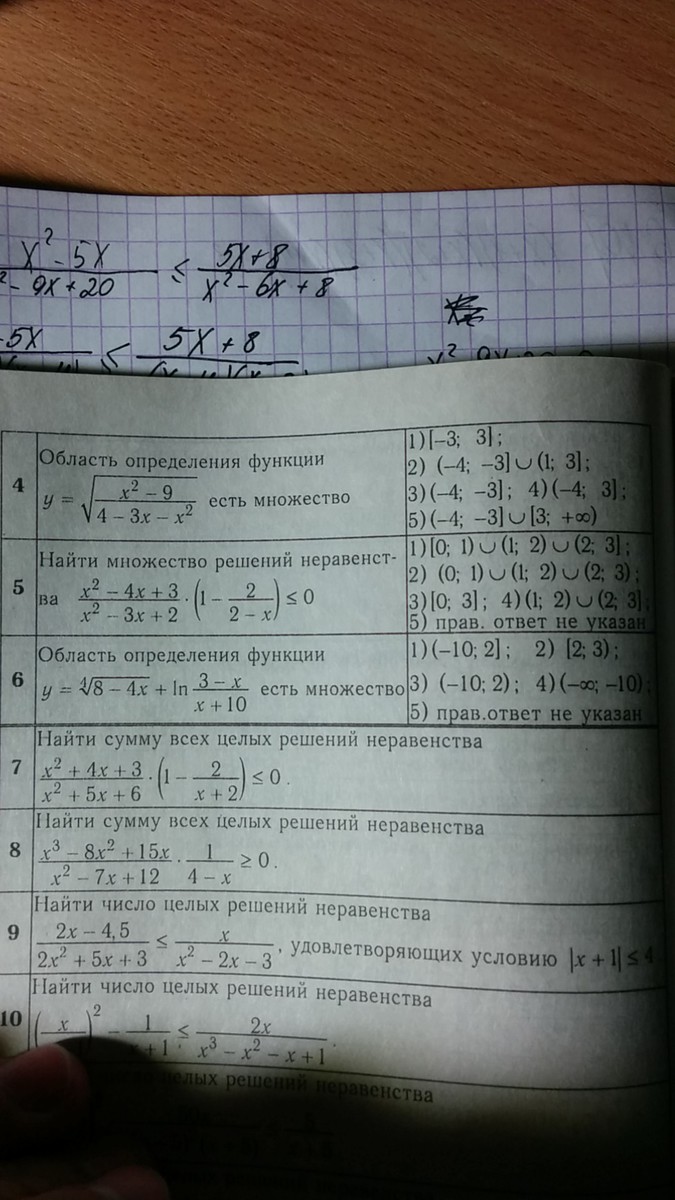 x² - 5x / ² - 9x + 20 ≤ 5x + 8 / x² - 6x + 8
-5x ≤ 5x + 8
4 Область определения функции
y = √((x² − 9)/(4 − 3x − x²)) есть множество
1) [−3; 3];
2) (−4; −3]∪(1; 3];
3) (−4; −3]; 4) (−4; 3];
5) (−4; −3]∪[3; +∞)
5 Найти множество решений неравенст-
ва (x² − 4x + 3)/(x² − 3x + 2) · (1 − 2/(2 − x)) ≤ 0
1) [0; 1)∪(1; 2)∪(2; 3];
2) (0; 1)∪(1; 2)∪(2; 3);
3) [0; 3]; 4) (1; 2)∪(2; 3];
5) прав. ответ не указан
6 Область определения функции
y = ∜(8 − 4x) + ln (3 − x)/(x + 10) есть множество
1) (−10; 2]; 2) [2; 3);
3) (−10; 2); 4) (−∞; −10);
5) прав.ответ не указан
7 Найти сумму всех целых решений неравенства
(x² + 4x + 3)/(x² + 5x + 6) · (1 − 2/(x + 2)) ≤ 0.
8 Найти сумму всех целых решений неравенства
(x³ − 8x² + 15x)/(x² − 7x + 12) · 1/(4 − x) ≥ 0.
9 Найти число целых решений неравенства
(2x − 4,5)/(2x² + 5x + 3) ≤ x/(x² − 2x − 3), удовлетворяющих условию |x + 1| ≤ 4
10 Найти число целых решений неравенства
(x )² − 1/(x + 1) ≤ 2x/(x³ − x² − x + 1).
целых решений неравенства